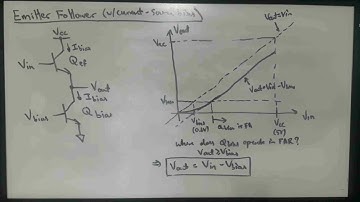 Emitter Follower (w/current-source bias)
Vcc
Ibias
Vin
Qef
Vout
Ibias
Vbias
Qbias
Vout
Vout=Vin
Vcc
Vbias
Vbias
(0.6V)
Qbias in FA
Vcc
(5V)
Vin
where does Qbias operate in FAR?
Vout≥Vbias
⇒ Vout = Vin - Vbias